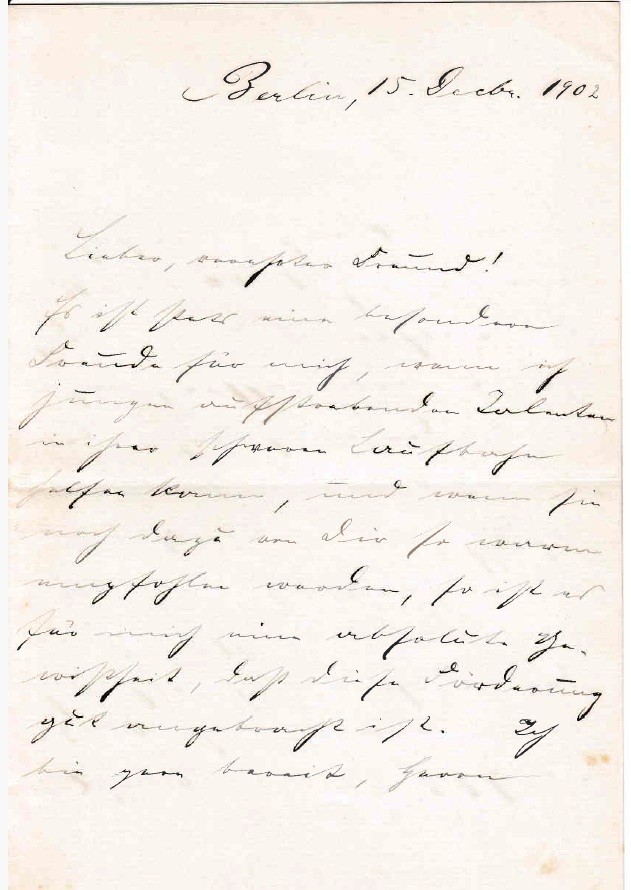 Berlin, 15. Decbr. 1902
Lieber, verehrter Freund!
Es ist stets eine besondere
Freude für mich, wenn ich
jungen aufstrebenden Talenten
in ihrer schweren Laufbahn
helfen kann, und wenn sie
noch dazu von Dir so warm
empfohlen werden, so ist es
für mich eine absolute Ge-
wißheit, daß diese Förderung
gut angebracht ist. Ich
bin gern bereit, Herrn